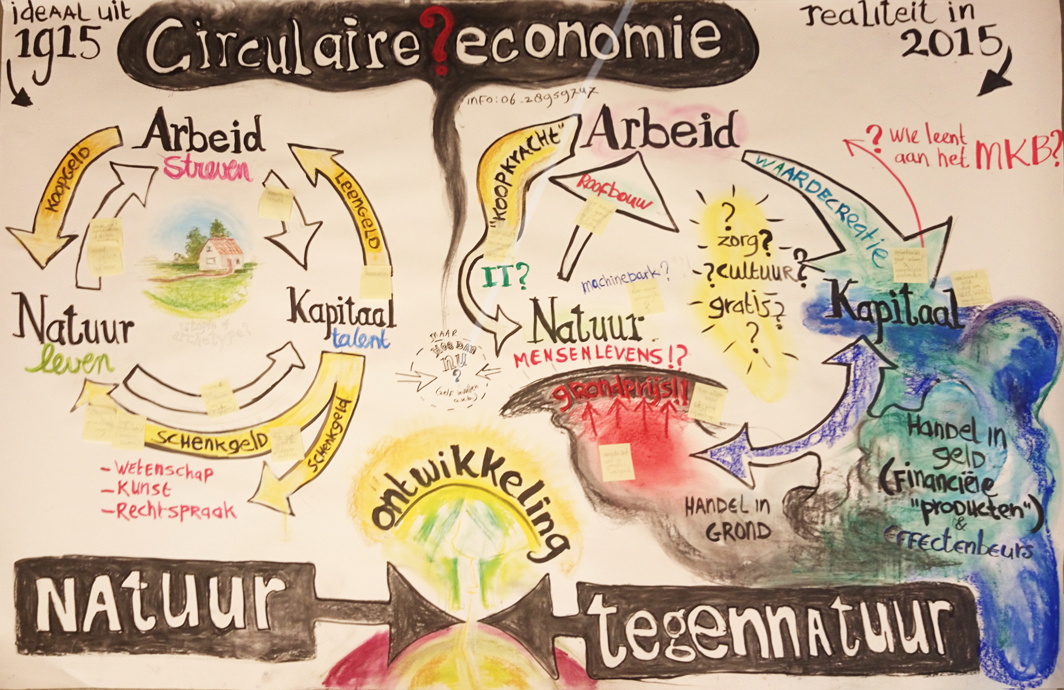 ideAAL uit
1915
Circulaire?economie
realiteit in
2015
info: 06-28959747
Arbeid
Streven
KOOPGELD
LEENGELD
Natuur
leven
Kapitaal
talent
SCHENKGELD
SCHENKGELD
- Wetenschap
- Kunst
- Rechtspraak
MAAR
nu
?
"KOOPKRACHT"
Arbeid
Roofbouw
WAARDECREATIE
? Wie leent
aan het MKB?
IT?
machinepark?
?
zorg?
?cultuur?
gratis?
?
Natuur
MENSENLEVENS!?
Kapitaal
grondprijs!!
HANDEL IN
GROND
Handel in
geld
(Financiële
"producten")
&
Effectenbeurs
"ontwikkeling
NATUUR
tegennATuur